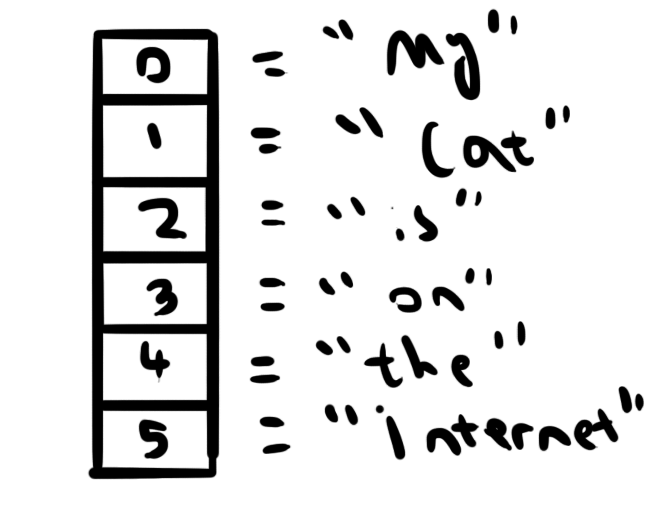 0 = "My"
1 = "Cat"
2 = "is"
3 = "on"
4 = "the"
5 = "internet"